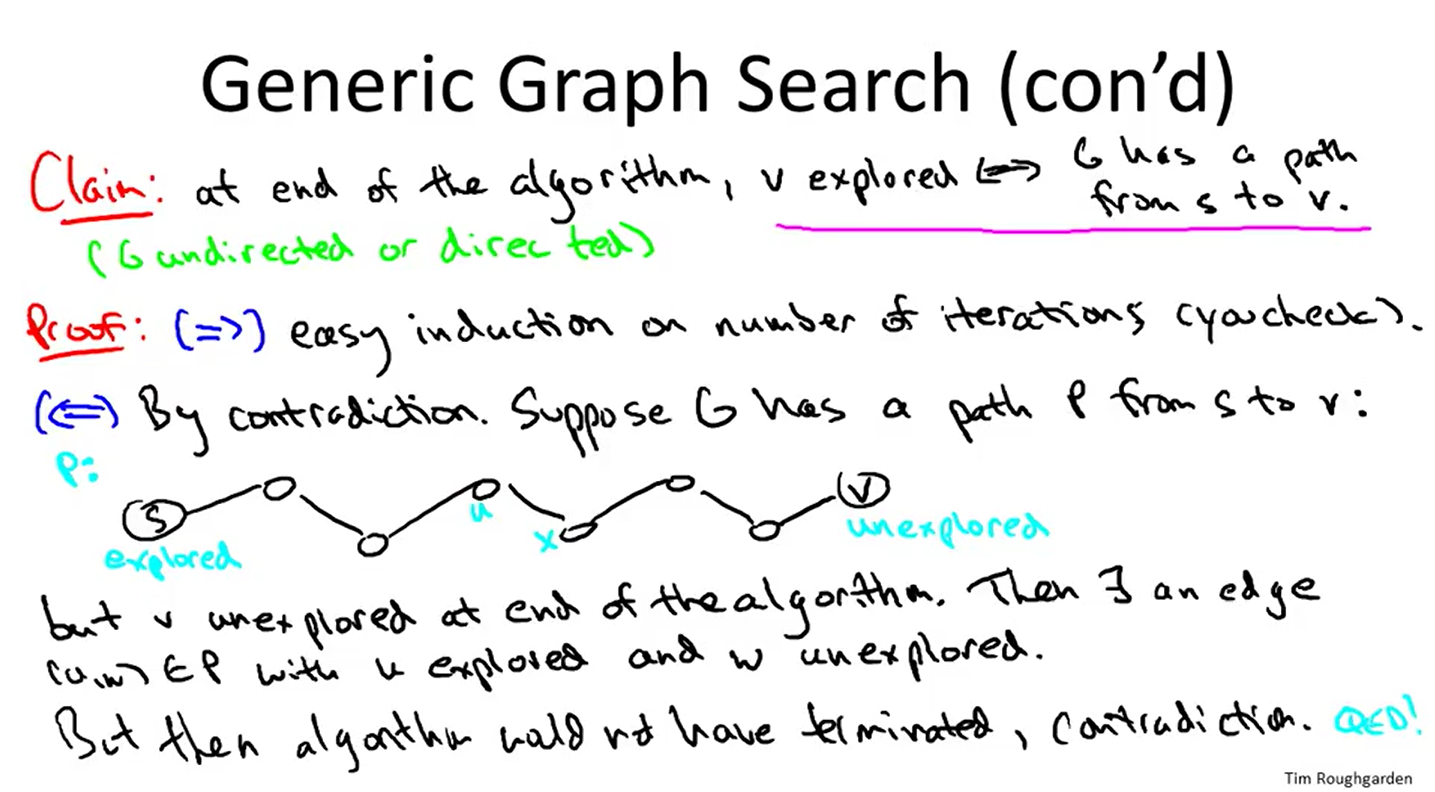 Generic Graph Search (con'd)
Claim: at end of the algorithm, v explored <=> G has a path
from s to v.
(G undirected or directed)
Proof: (=>) easy induction on number of iterations (you check).
(<=) By contradiction. Suppose G has a path P from s to v:
P:
s
u
x
v
explored
unexplored
but v unexplored at end of the algorithm. Then ∃ an edge
(u,w) ∈ P with u explored and w unexplored.
But then algorithm would not have terminated, contradiction. QED!
Tim Roughgarden